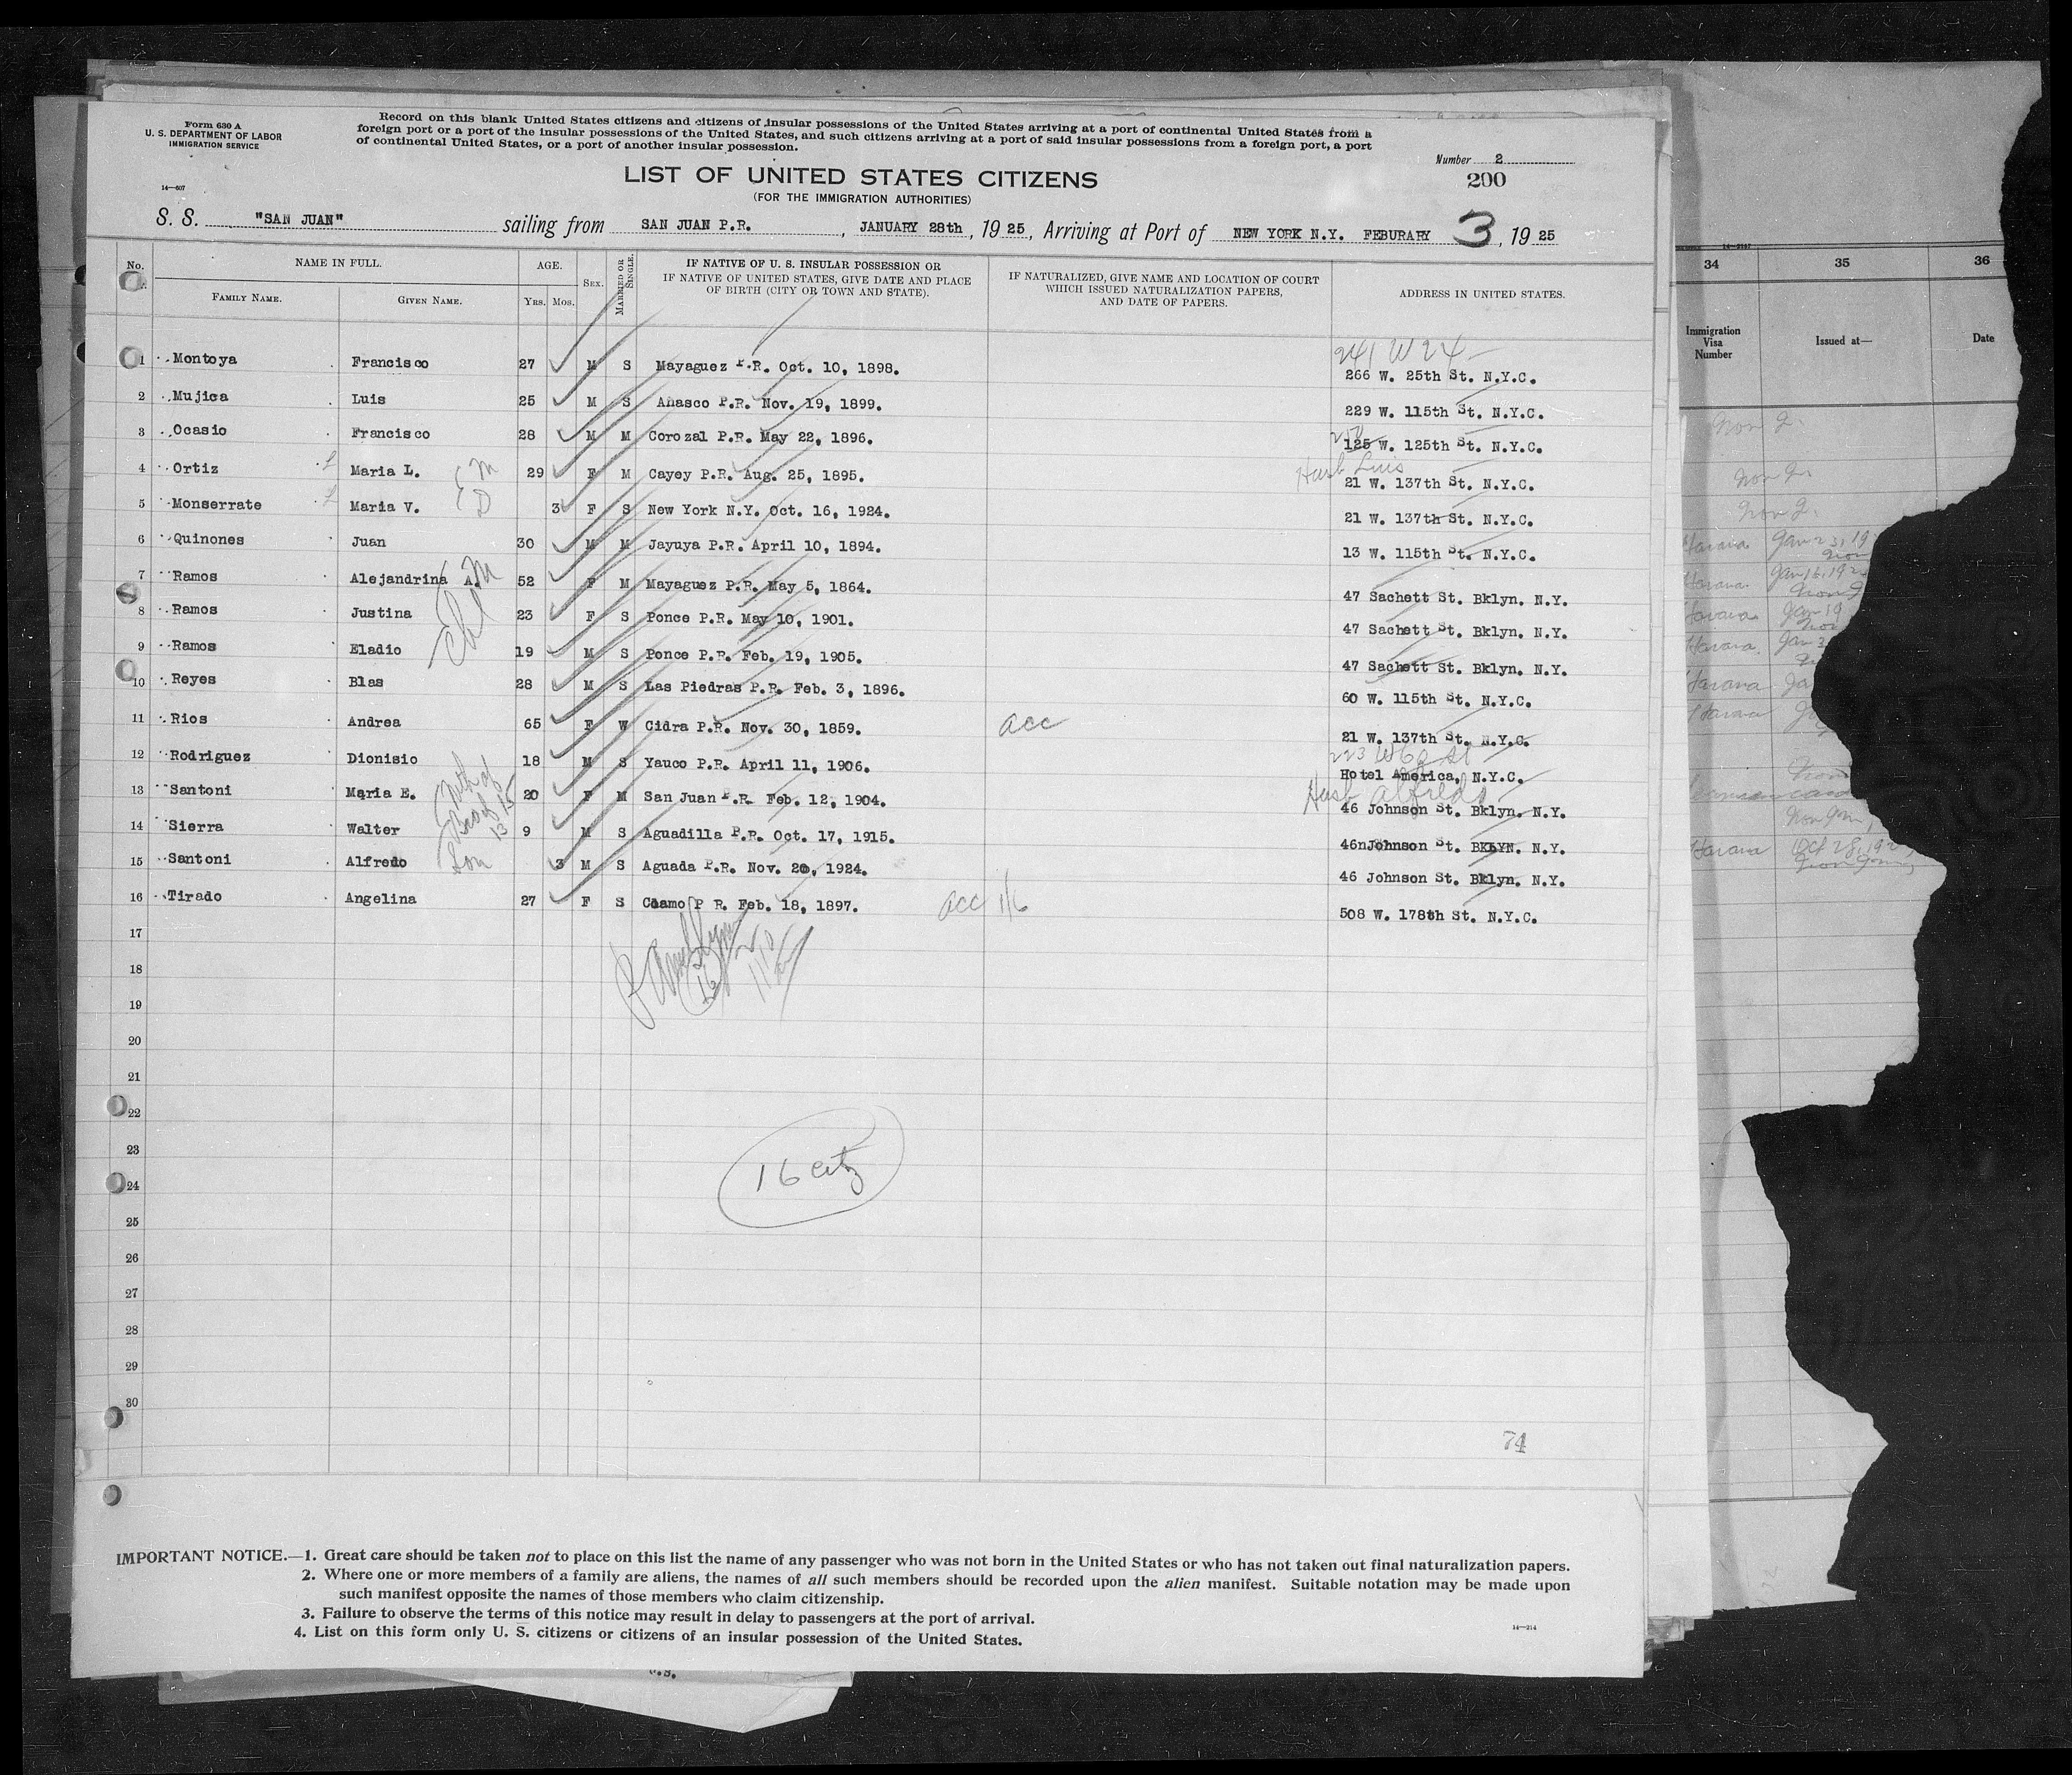 Form 630 A
U. S. DEPARTMENT OF LABOR
IMMIGRATION SERVICE
14—607
Record on this blank United States citizens and citizens of insular possessions of the United States arriving at a port of continental United States from a
foreign port or a port of the insular possessions of the United States, and such citizens arriving at a port of said insular possessions from a foreign port, a port
of continental United States, or a port of another insular possession.
Number 2
200
LIST OF UNITED STATES CITIZENS
(FOR THE IMMIGRATION AUTHORITIES)
S. S. "SAN JUAN" sailing from SAN JUAN P.R. , JANUARY 28th , 19 25 , Arriving at Port of NEW YORK N.Y. FEBURARY 3 , 19 25
No. NAME IN FULL. AGE. SEX. MARRIED OR SINGLE. IF NATIVE OF U. S. INSULAR POSSESSION OR IF NATIVE OF UNITED STATES, GIVE DATE AND PLACE OF BIRTH (CITY OR TOWN AND STATE). IF NATURALIZED, GIVE NAME AND LOCATION OF COURT WHICH ISSUED NATURALIZATION PAPERS, AND DATE OF PAPERS. ADDRESS IN UNITED STATES.
FAMILY NAME. GIVEN NAME. Yrs. Mos.
241 W 24
1 Montoya Francisco 27 M S Mayaguez P.R. Oct. 10, 1898. 266 W. 25th St. N.Y.C.
2 Mujica Luis 25 M S Anasco P.R. Nov. 19, 1899. 229 W. 115th St. N.Y.C.
3 Ocasio Francisco 28 M M Corozal P.R. May 22, 1896. 125 W. 125th St. N.Y.C.
Husb Luis
4 Ortiz Maria L. M 29 F M Cayey P.R. Aug. 25, 1895. 21 W. 137th St. N.Y.C.
5 Monserrate Maria V. D 3 F S New York N.Y. Oct. 16, 1924. 21 W. 137th St. N.Y.C.
6 Quinones Juan 30 M M Jayuya P.R. April 10, 1894. 13 W. 115th St. N.Y.C.
7 Ramos Alejandrina A. M 52 F M Mayaguez P.R. May 5, 1864. 47 Sachett St. Bklyn. N.Y.
8 Ramos Justina 23 F S Ponce P.R. May 10, 1901. 47 Sachett St. Bklyn. N.Y.
9 Ramos Eladio 19 M S Ponce P.R. Feb. 19, 1905. 47 Sachett St. Bklyn. N.Y.
10 Reyes Blas 28 M S Las Piedras P.R. Feb. 3, 1896. 60 W. 115th St. N.Y.C.
11 Rios Andrea 65 F W Cidra P.R. Nov. 30, 1859. acc 21 W. 137th St. N.Y.C.
12 Rodriguez Dionisio 18 M S Yauco P.R. April 11, 1906. Hotel America, N.Y.C.
Husb Alfredo
13 Santoni Maria E. 20 F M San Juan P.R. Feb. 12, 1904. 46 Johnson St. Bklyn. N.Y.
14 Sierra Walter 9 M S Aguadilla P.R. Oct. 17, 1915. 46nJohnson St. BKLYN. N.Y.
15 Santoni Alfredo Son 3 M S Aguada P.R. Nov. 20, 1924. 46 Johnson St. Bklyn. N.Y.
16 Tirado Angelina 27 F S Coamo P R. Feb. 18, 1897. acc 1/6 508 W. 178th St. N.Y.C.
17
18
19
20
21
22
23
24
25
26
27
28
29
30
16 citz
74
IMPORTANT NOTICE.—1. Great care should be taken not to place on this list the name of any passenger who was not born in the United States or who has not taken out final naturalization papers.
2. Where one or more members of a family are aliens, the names of all such members should be recorded upon the alien manifest. Suitable notation may be made upon
such manifest opposite the names of those members who claim citizenship.
3. Failure to observe the terms of this notice may result in delay to passengers at the port of arrival.
4. List on this form only U. S. citizens or citizens of an insular possession of the United States.
14—214
34 35 36
Immigration Visa Number Issued at— Date
Havana
Havana
Havana
Havana
Havana
Havana
Havana